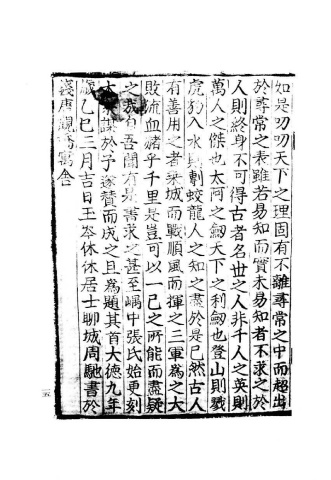 如是叨叨天下之理固有不離尋常之中而超出
於尋常之表雖若易知而實未易知者不求之於
人則終身不可得古者名世之人非千人之英則
萬人之傑也太阿之劒天下之利劒也登山則戮
虎豹入水則剸蛟龍人之知之盡於是已然古人
有善用之者乘城而戰順風而揮之三軍為之大
敗流血赭乎千里是豈可以一己之所能而盡疑
之哉自吾聞有是書求之甚至嵎中張氏始更刻
本謀於予遂贊而成之且為題其首大德九年
歲乙巳三月吉日王岑休休居士聊城周馳書於
唐觀寓舍